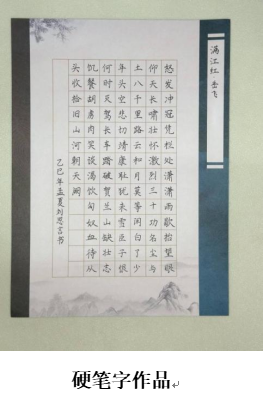 满江红 岳飞
怒发冲冠凭栏处潇潇雨歇抬望眼
仰天长啸壮怀激烈三十功名尘与
土八千里路云和月莫等闲白了少
年头空悲切靖康耻犹未雪臣子恨
何时灭驾长车踏破贺兰山缺壮志
饥餐胡虏肉笑谈渴饮匈奴血待从
头收拾旧山河朝天阙
乙巳年孟夏刘思言书
硬笔字作品